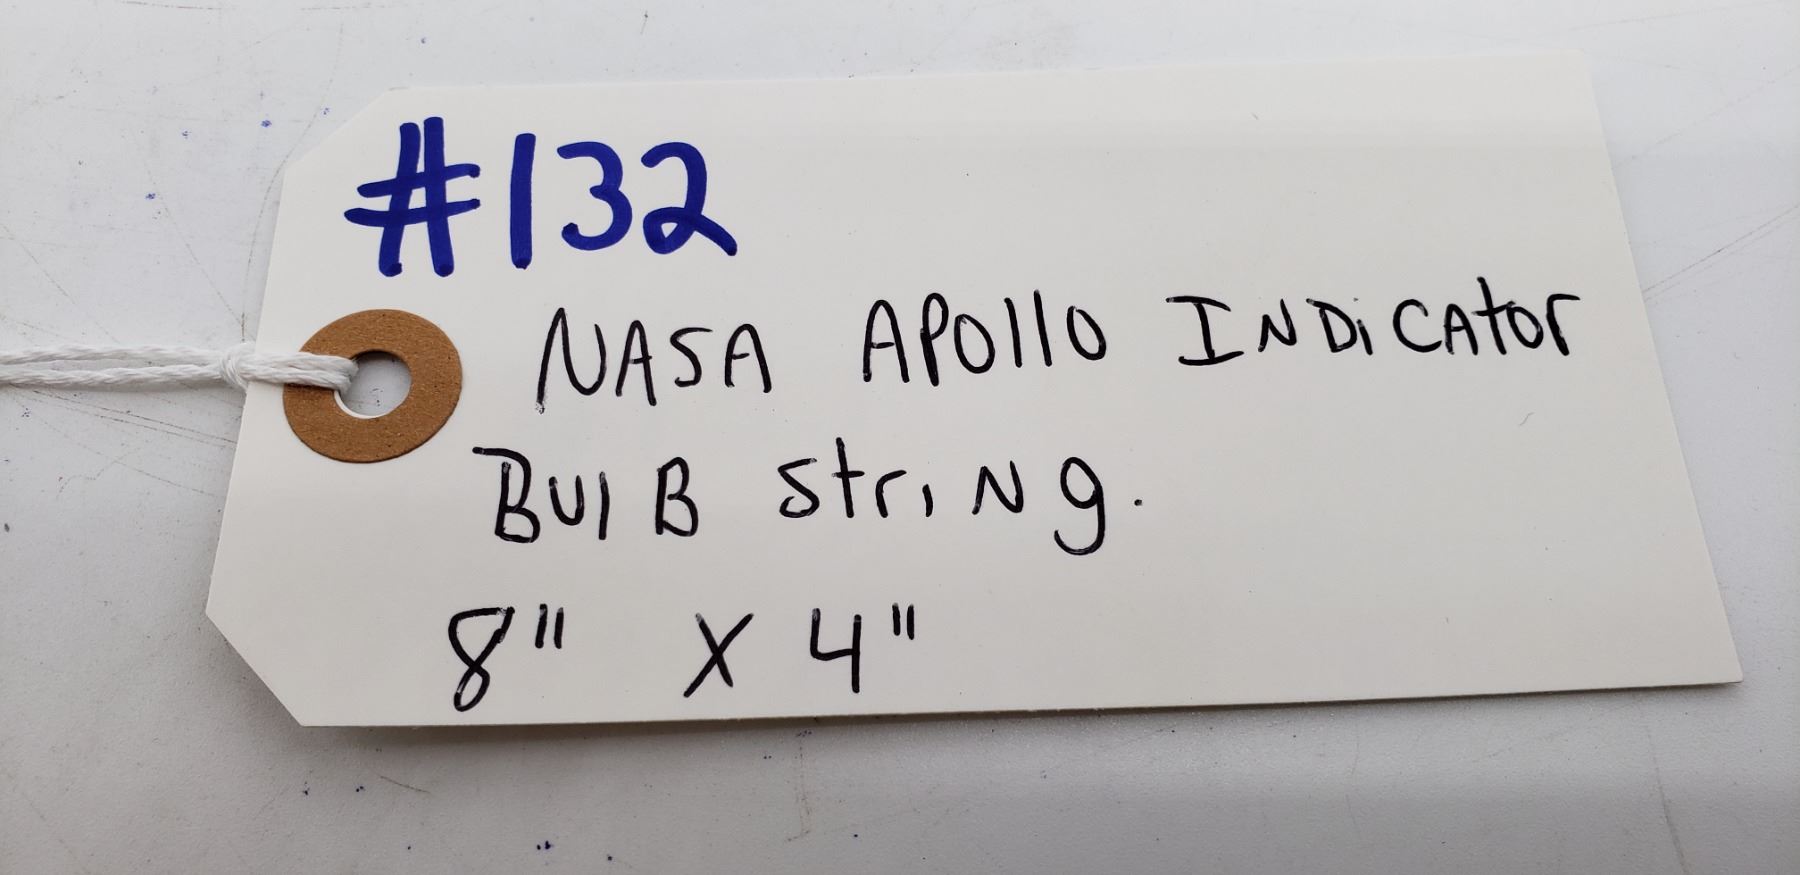 #132
NASA APOllO INDiCAtor
BUlB StriNg.
8" X 4"